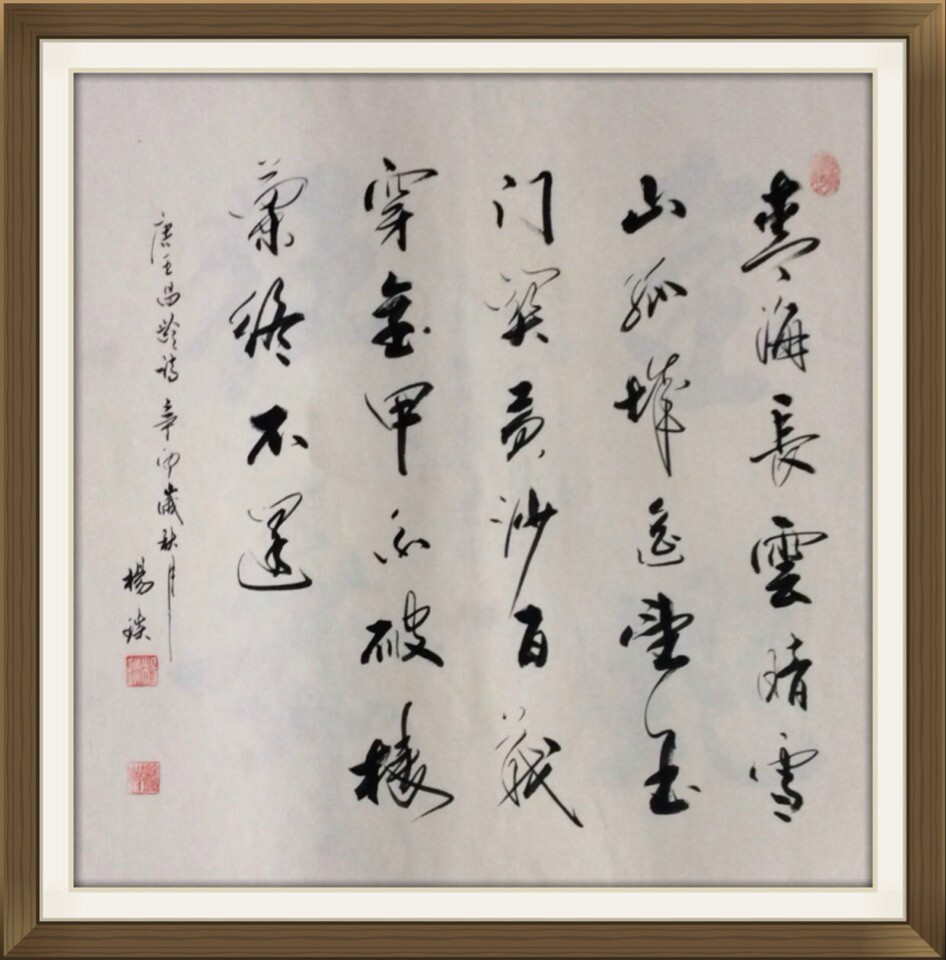 青海長雲暗雪
山孤城遥望玉
门関黄沙百戰
穿金甲不破樓
蘭終不還
唐王昌齡詩 辛卯歲秋月
楊